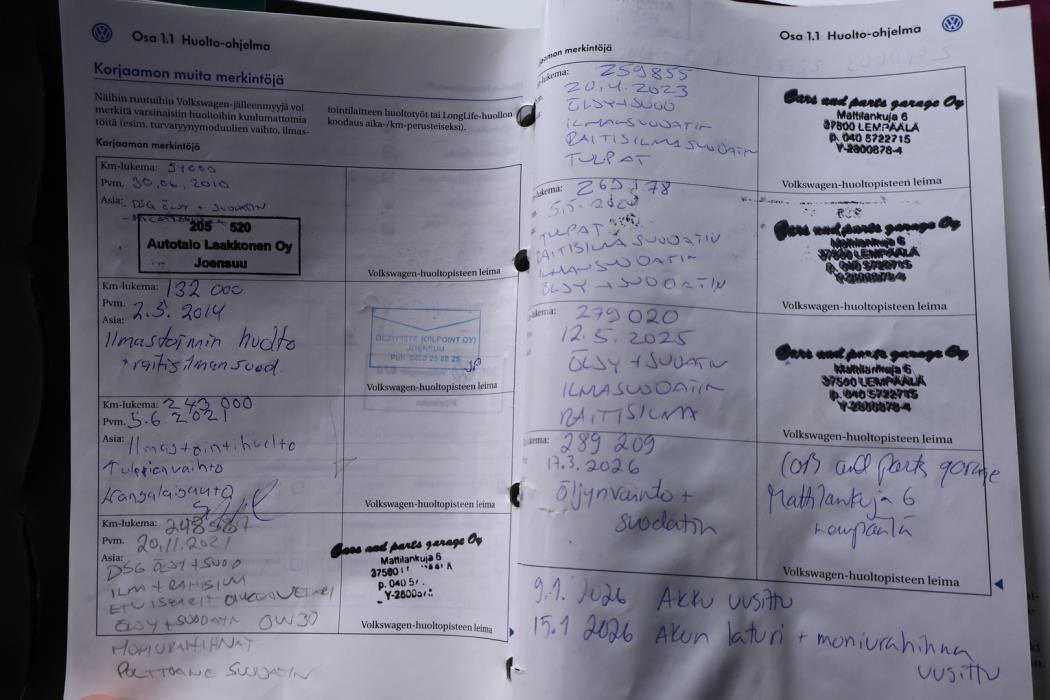 Osa 1.1 Huolto-ohjelma
Korjaamon muita merkintöjä
Näihin ruutuihin Volkswagen-jälleenmyyjä voi
merkitä varsinaisiin huoltoihin kuulumattomia
töitä (esim. turvatyynymoduulien vaihto, ilmas-
tointilaitteen huoltotyöt tai LongLife-huollon
koodaus aika-/km-perusteiseksi).
Korjaamon merkintöjä
Km-lukema: 54000
Pvm. 30.06.2010
Asia: DSG ÖLJY + SUODATIN
205 520
Autotalo Laakkonen Oy
Joensuu
Volkswagen-huoltopisteen leima
Km-lukema: 132 000
Pvm. 2.5. 2014
Asia:
Ilmastoinnin huolto
+ raitisilmansuod.
ÖLJYPISTE (OILPOINT OY)
JOENSUU
PUH. 0400 25 88 25
JP
Volkswagen-huoltopisteen leima
Km-lukema: 243 000
Pvm. 5.6.2021
Asia: Ilmastointihuolto
Tulppien vaihto
Kangalaisauto
Volkswagen-huoltopisteen leima
Km-lukema: 248587
Pvm. 20.11.2021
Asia:
DSG ÖLJY + SUOD
ILM + RAITISILM
ÖLJY + SUODATIN 0W30
MONIURAHIHNAT
POLTTOAINE SUODATIN
Cars and parts garage Oy
Mattilankuja 6
37500
p. 040 5
Y-2800
Volkswagen-huoltopisteen leima
Osa 1.1 Huolto-ohjelma
amon merkintöjä
-lukema: 259855
20.4.2023
ÖLJY+SUOD
ILMASUODATIN
RAITISILMASUODATIN
TULPAT
Cars and parts garage Oy
Mattilankuja 6
37500 LEMPÄÄLÄ
p. 040 5722715
Y-2800878-4
Volkswagen-huoltopisteen leima
lukema: 269178
5.5.
TULPAT
RAITISILMA SUODATIN
ILMANSUODATIN
ÖLJY + SUODATIN
Cars and parts garage Oy
Mattilankuja 6
37500 LEMPÄÄLÄ
p. 040 5722715
Y-2800878-4
Volkswagen-huoltopisteen leima
lukema: 279 020
12.5.2025
ÖLJY + SUODATIN
ILMASUODATIN
RAITISILMA
Cars and parts garage Oy
Mattilankuja 6
37500 LEMPÄÄLÄ
p. 040 5722715
Y-2800878-4
Volkswagen-huoltopisteen leima
kema: 289 209
17.3. 2026
Öljynvaihto +
suodatin
Cars and parts garage
Mattilankuja 6
Lempäälä
Volkswagen-huoltopisteen leima
9.1. 2026 Akku uusittu
15.1 2026 Akun laturi + moniurahihna
uusittu